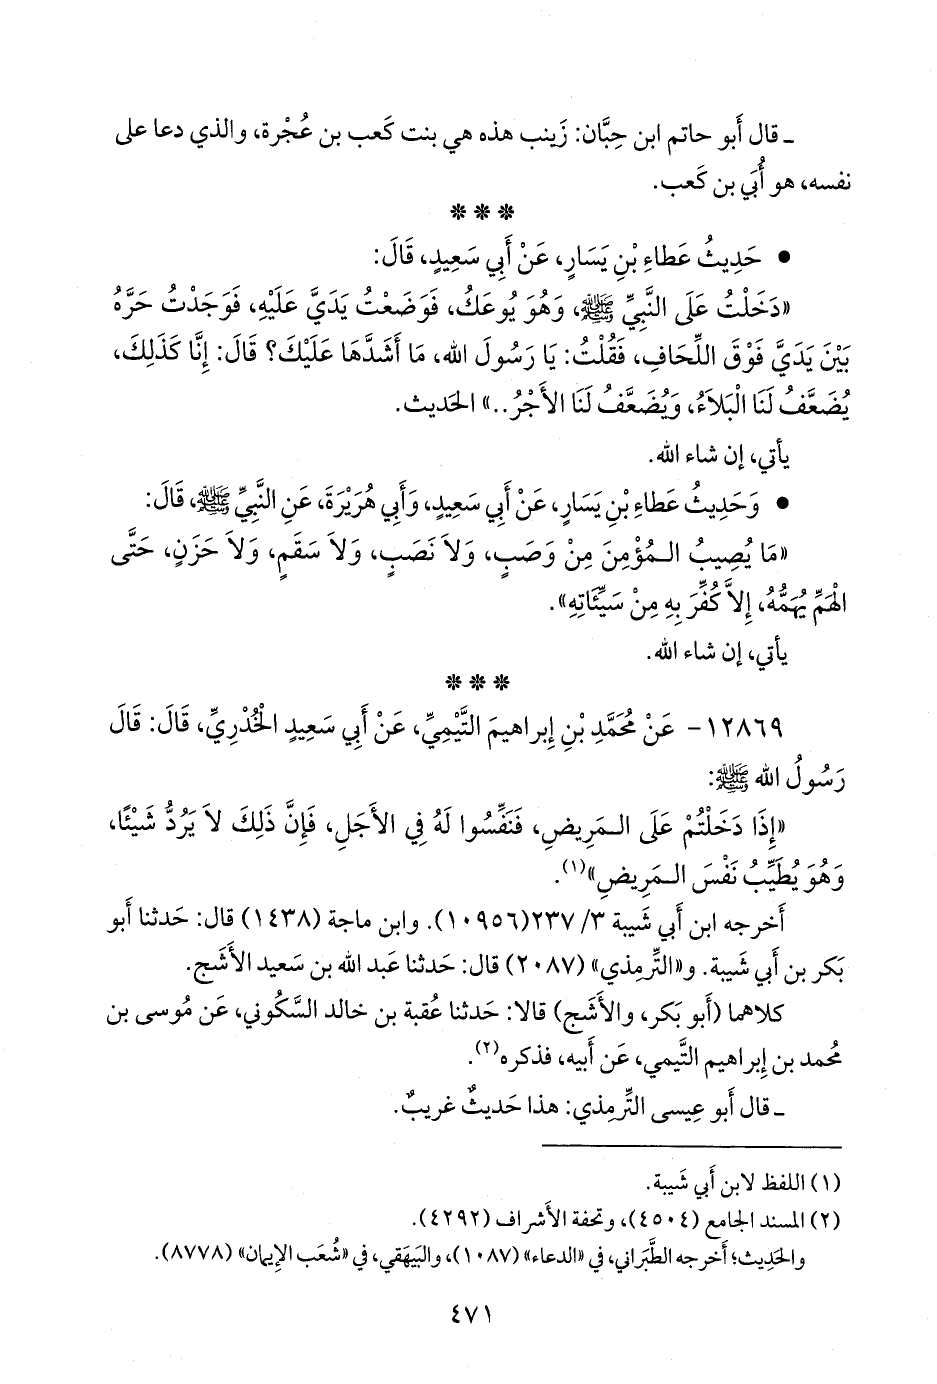 ـ قال أَبو حاتم ابن حِبَّان: زَينب هذه هي بنت كَعب بن عُجْرة، والذي دعا على
نفسه، هو أُبَي بن كَعب.
* * *
● حَدِيثُ عَطاءِ بْنِ يَسَارٍ، عَنْ أَبِي سَعِيدٍ، قَالَ:
«دَخَلْتُ عَلَى النَّبِيِّ ﷺ، وَهُوَ يُوعَكُ، فَوَضَعْتُ يَدَيَّ عَلَيْهِ، فَوَجَدْتُ حَرَّهُ
بَيْنَ يَدَيَّ فَوْقَ اللِّحَافِ، فَقُلْتُ: يَا رَسُولَ الله، مَا أَشَدَّهَا عَلَيْكَ؟ قَالَ: إِنَّا كَذَلِكَ،
يُضَعَّفُ لَنَا الْبَلَاءُ، وَيُضَعَّفُ لَنَا الأَجْرُ..» الحَديث.
يأتي، إن شاء الله.
● وَحَدِيثُ عَطاءِ بْنِ يَسَارٍ، عَنْ أَبِي سَعِيدٍ، وَأَبِي هُرَيْرَةَ، عَنِ النَّبِيِّ ﷺ، قَالَ:
«مَا يُصِيبُ الـمُؤْمِنَ مِنْ وَصَبٍ، وَلَا نَصَبٍ، وَلَا سَقَمٍ، وَلَا حَزَنٍ، حَتَّى
الْهَمِّ يُهَمُّهُ، إِلاَّ كُفِّرَ بِهِ مِنْ سَيِّئَاتِهِ».
يأتي، إن شاء الله.
* * *
١٢٨٦٩- عَنْ مُحَمَّدِ بْنِ إِبراهيمَ التَّيْمِيِّ، عَنْ أَبِي سَعِيدٍ الْخُدْرِيِّ، قَالَ: قَالَ
رَسُولُ الله ﷺ:
«إِذَا دَخَلْتُمْ عَلَى الـمَرِيضِ، فَنَفِّسُوا لَهُ فِي الأَجَلِ، فَإِنَّ ذَلِكَ لَا يَرُدُّ شَيْئًا،
وَهُوَ يُطَيِّبُ نَفْسَ الـمَرِيضِ»(١).
أَخرجه ابن أَبي شَيبة ٣/ ٢٣٧(١٠٩٥٦). وابن ماجة (١٤٣٨) قال: حَدثنا أَبو
بَكر بن أَبي شَيبة. و«التِّرمِذي» (٢٠٨٧) قال: حَدثنا عَبد الله بن سَعيد الأَشَج.
كلاهما (أَبو بَكر، والأَشَج) قالا: حَدثنا عُقبة بن خالد السَّكُوني، عَن مُوسى بن
مُحمد بن إِبراهيم التَّيمي، عَن أَبيه، فذكره(٢).
ـ قال أَبو عِيسى التِّرمِذي: هذا حَديثٌ غريبٌ.
(١) اللفظ لابن أَبي شَيبة.
(٢) المسند الجامع (٤٥٠٤)، وتحفة الأَشراف (٤٢٩٢).
والحَدِيث؛ أَخرجه الطَّبَراني، في «الدعاء» (١٠٨٧)، والبَيهَقي، في «شُعَب الإِيمان» (٨٧٧٨).
٤٧١